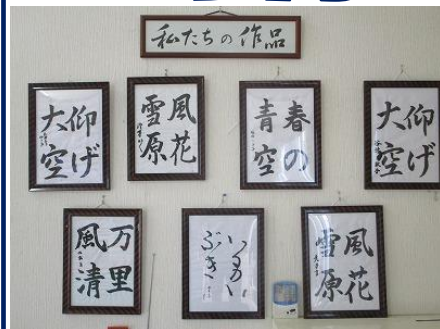 私たちの作品
仰げ
大空
風花
雪原
春の
青空
仰げ
大空
万里
風清
風花
雪原